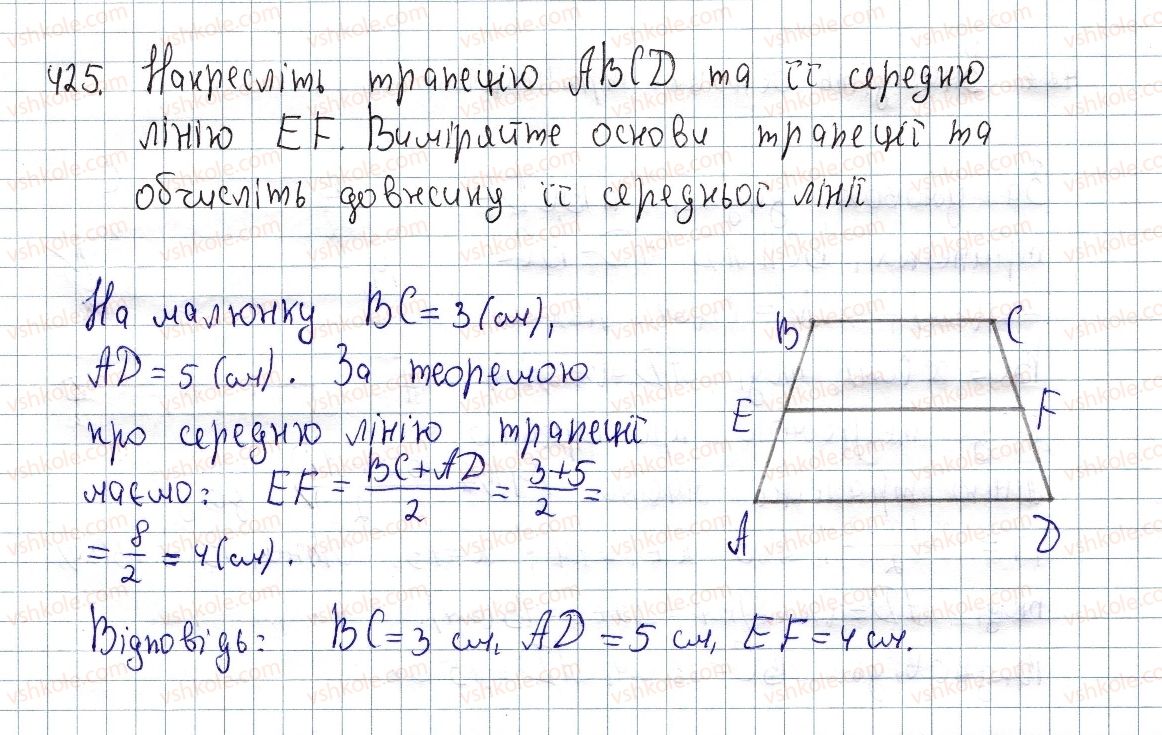 425. Накресліть трапецію ABCD та її середню
лінію EF. Виміряйте основи трапеції та
обчисліть довжину її середньої лінії
На малюнку BC = 3 (см),
AD = 5 (см). За теоремою
про середню лінію трапеції
маємо: EF = (BC+AD)/2 = (3+5)/2 =
= 8/2 = 4 (см).
Відповідь: BC = 3 см, AD = 5 см, EF = 4 см.
B C
E F
A D
vshkole.com